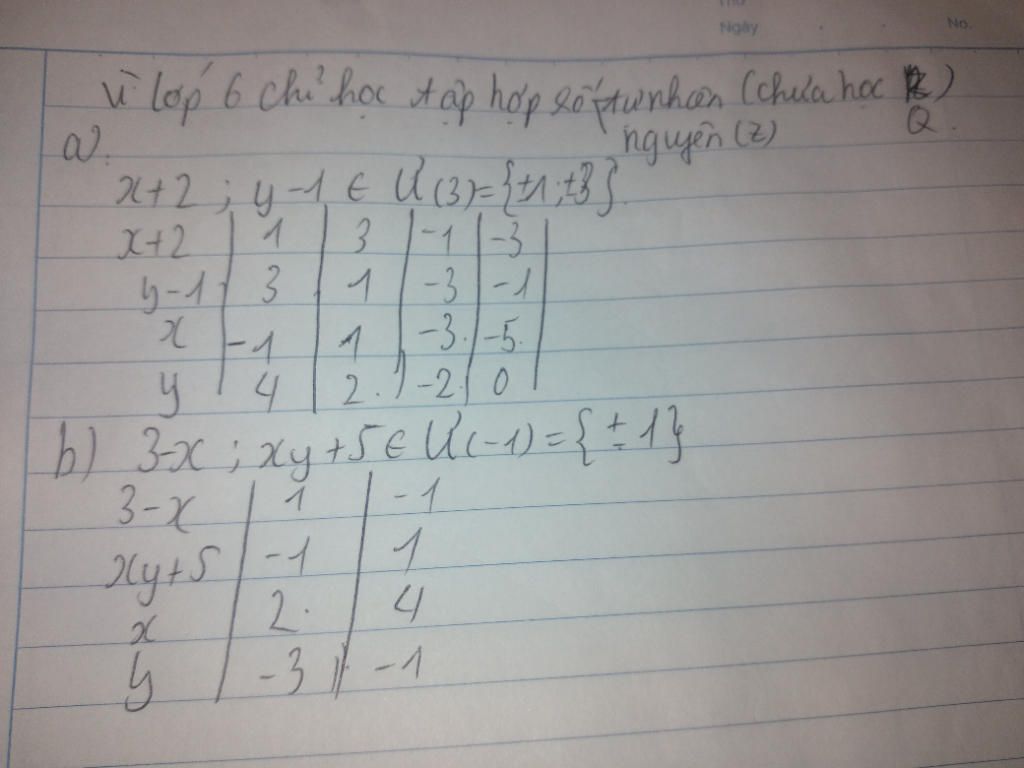 Thứ
Ngày
No.
Vì lớp 6 chỉ học tập hợp số tự nhiên (chưa học Q)
nguyên (Z)
a)
x+2 ; y-1 ∈ Ư(3)={±1;±3}
x+2 | 1 | 3 | -1 | -3
y-1 | 3 | 1 | -3 | -1
x | -1 | 1 | -3 | -5
y | 4 | 2 | -2 | 0
b) 3-x ; xy+5 ∈ Ư(-1)={±1}
3-x | 1 | -1
xy+5 | -1 | 1
x | 2 | 4
y | -3 | -1